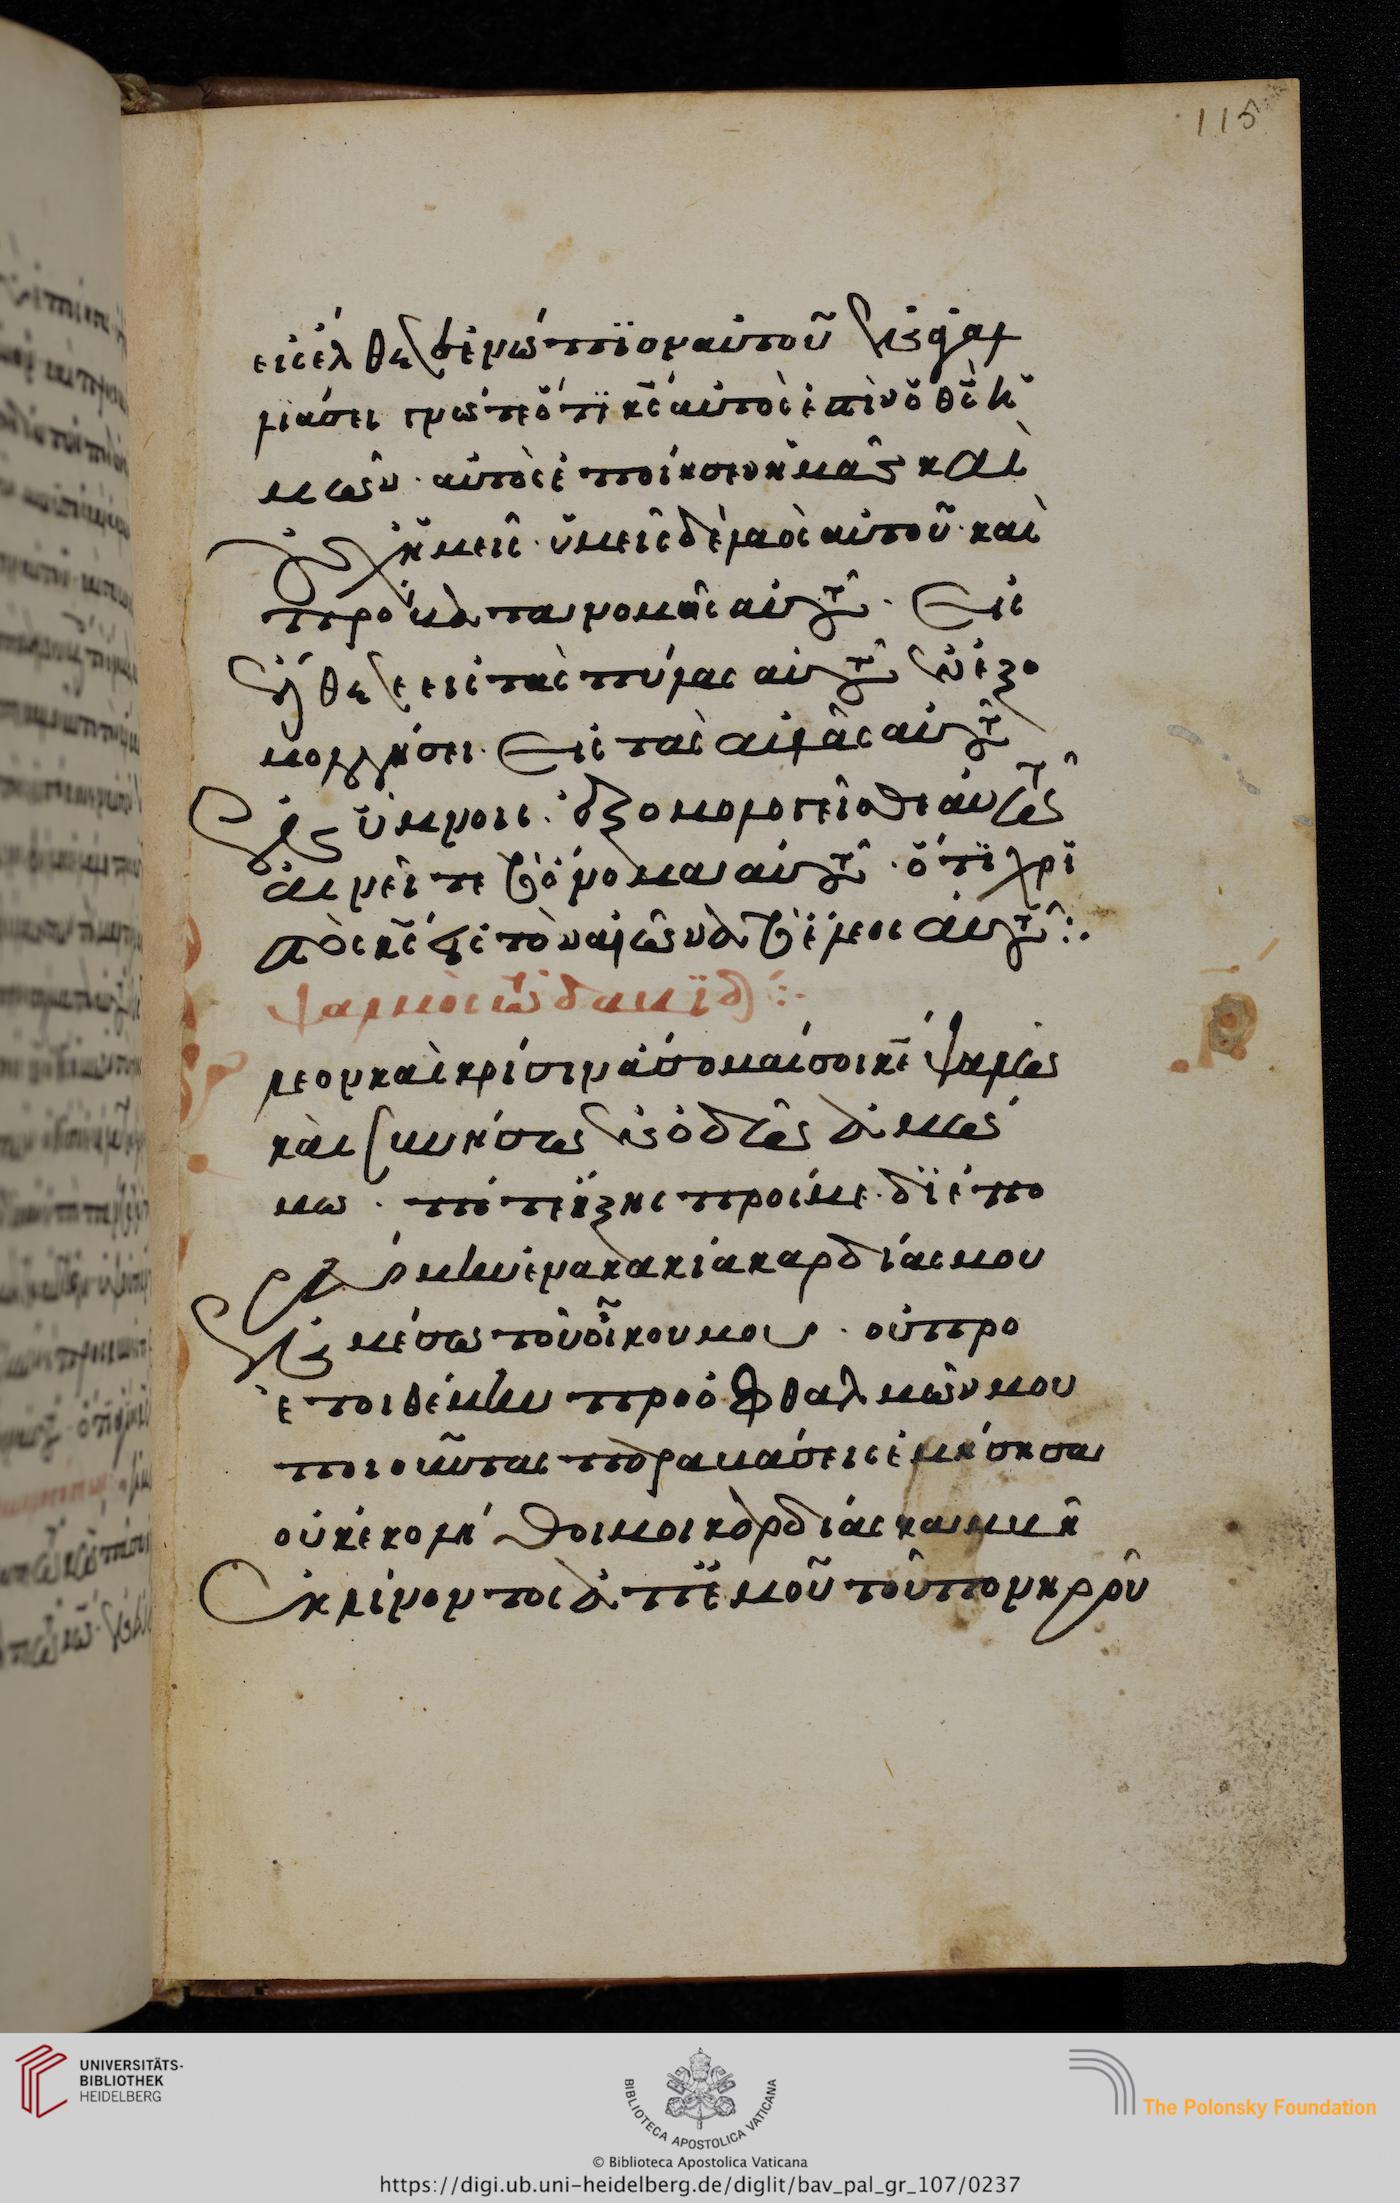 115
εἰσέλθετε ἐνώπϊον αὐτοῦ ἐν ἀγαλ
λιάσει γνῶτε ὅτϊ κς αὐτός ἐστὶν ὁ θς ἡ
μῶν· αὐτὸς ἐποίησεν ἡμᾶς καὶ
οὐχ ἡμεῖς· ἡμεῖς δὲ λαὸς αὐτοῦ· καὶ
πρόβατα νομῆς αὐτοῦ· Εἰσ
έλθετε εἰς τὰς πύλας αὐτοῦ ἐν ἐξο
μολογήσει· Εἰς τὰς αὐλὰς αὐτοῦ
ἐν ὕμνοις· ἐξομολογεῖσθε αὐτῶ
αἰνεῖτε τὸ ὄνομα αὐτοῦ· ὅτϊ χρη
στὸς κς εἰς τὸν αἰῶνα τὸ ἔλεος αὐτοῦ:·
ψαλμὸς τῶ δαυϊδ:·
λεον καὶ κρίσιν ἄσομαί σοι κε ψαλῶ
καὶ συνήσω ἐν ὁδῶ ἀμώ
μω· πότε ἥξης πρός με· δϊεπο
ρευόμην ἐν ἀκακία καρδίας μου
ἐν μέσω τοῦ οἴκου μου· οὐ προ
ετοιθέμην πρὸ ὀφθαλμῶν μου
ποιοῦντας παραβάσεις ἐμήσησα
οὐκ ἐκολήθοι μοι καρδία σκαμβὴ
Ἐκλίνοντος ἀπ ἐμοῦ τοῦ πονηροῦ
UNIVERSITÄTS-
BIBLIOTHEK
HEIDELBERG
BIBLIOTECA APOSTOLICA VATICANA
The Polonsky Foundation
© Biblioteca Apostolica Vaticana
https://digi.ub.uni-heidelberg.de/diglit/bav_pal_gr_107/0237